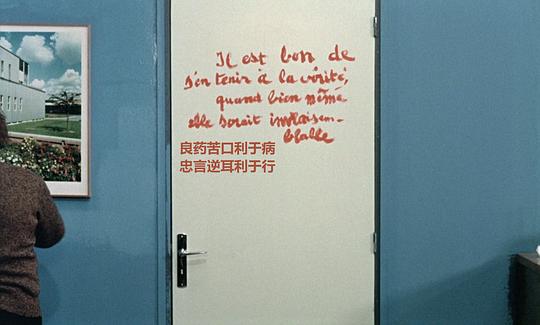 Il est bon de
s'en tenir à la vérité,
quand bien même
elle serait invraisem-
blable
良药苦口利于病
忠言逆耳利于行